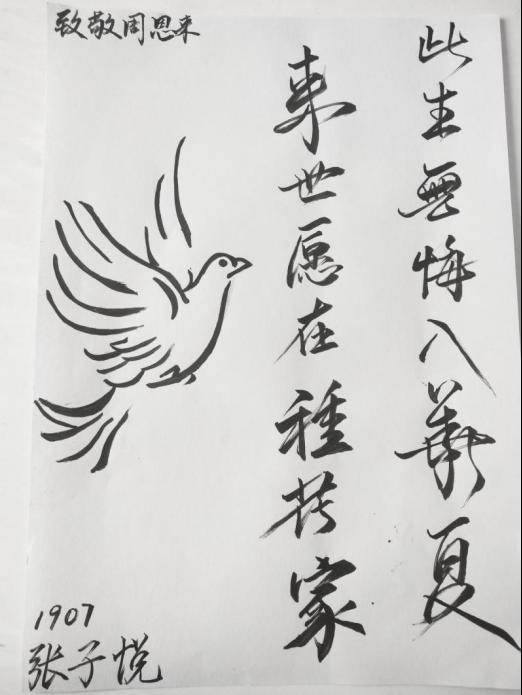 致敬周恩来
此生無悔入華夏
来世愿在種花家
1907
张子悦